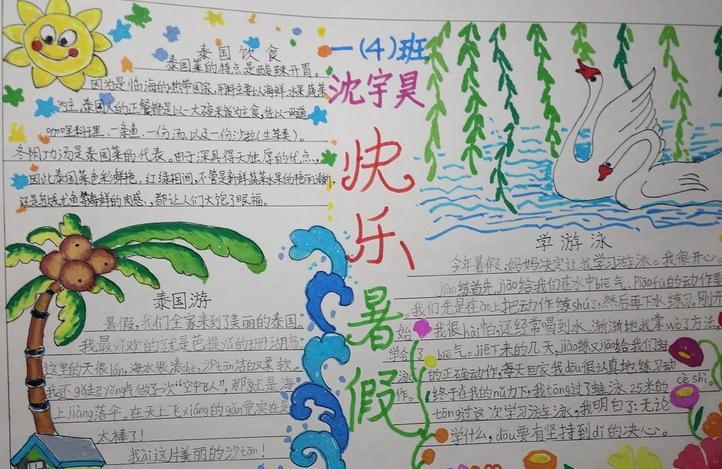 泰国饮食
泰国菜的特点是酸辣开胃。
因为是临海的热带国家,用料主要以海鲜水果蔬菜
为主,泰国人的正餐都是以一大碗米饭为主食,佐以一两道
咖喱料理、一条鱼、一份汤,以及一份沙拉(生菜类)。
冬阴功汤是泰国菜的代表。由于深具得天独厚的优点,
因此泰国菜色彩鲜艳,红绿相间,不管是新鲜蔬菜水果的艳丽清新
还是各式海鲜的肉感,都让人们大饱了眼福。
一(4)班
沈宇昊
快乐暑假
泰国游
暑假,我们全家来到了美丽的泰国。
我最喜欢的就是芭提yǎ的珊瑚岛
这里的天很lán,海水很清chè,沙tān洁白柔软。
我还
点做了一次“空中飞人”,那就是海
上jiàng落伞,在天上飞xiáng的gǎn觉实在是
太棒了!
我ài这片美丽的沙tān!
学游泳
今年暑假,妈妈决定让我学习游泳。我很开心。
jiào练首先jiāo给我们在水中biē气、Piāofú的动作要
我们先是在àn上把动作练shú,然后再下水练习。刚开
始,我很hài怕,还经常喝到水,渐渐地我掌wò了方法,
学会了biē气。jiē下来的几天,jiào练又jiāo给我们蛙
泳的正确动作,每天回家我dōu很认真地练习动
作。终于在我的nǔ力下,我tōng过了蛙泳25米的
cè shì。
tōng过这次学习蛙泳,我明白了:无论
学什么,dōu要有坚持到dǐ的决心。